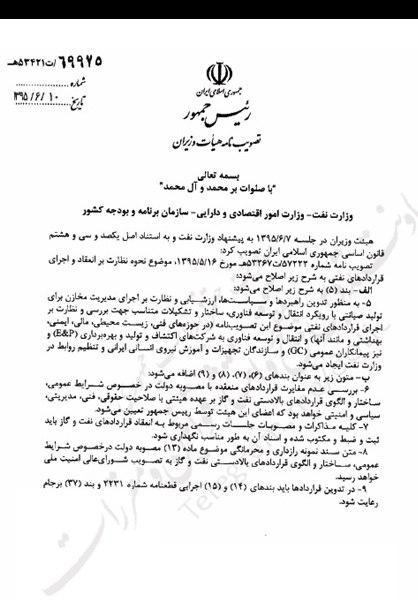 ۶۹۹۷۵/ت۵۳۴۲۱هـ
شماره
تاریخ ۱۳۹۵/۶/۱۰
جمهوری اسلامی ایران
رئیس جمهور
تصویب نامه هیأت وزیران
بسمه تعالی
"با صلوات بر محمد و آل محمد"
وزارت نفت- وزارت امور اقتصادی و دارایی- سازمان برنامه و بودجه کشور
هیئت وزیران در جلسه ۱۳۹۵/۶/۷ به پیشنهاد وزارت نفت و به استناد اصل یکصد و سی و هشتم
قانون اساسی جمهوری اسلامی ایران تصویب کرد:
تصویب نامه شماره ۵۷۲۲۲/ت۵۳۲۶۷هـ مورخ ۱۳۹۵/۵/۱۶، موضوع نحوه نظارت بر انعقاد و اجرای
قراردادهای نفتی به شرح زیر اصلاح می‌شود:
الف- بند (۵) به شرح زیر اصلاح می‌شود:
۵- به منظور تدوین راهبردها و سیاست‌ها، ارزشیابی و نظارت بر اجرای مدیریت مخازن برای
تولید صیانتی با رویکرد انتقال و توسعه فناوری، ساختار و تشکیلات متناسب جهت بررسی و نظارت بر
اجرای قراردادهای نفتی موضوع این تصویب‌نامه (در حوزه‌های فنی، زیست محیطی، مالی، ایمنی،
بهداشتی و مانند آنها) و انتقال و توسعه فناوری به شرکت‌های اکتشاف و تولید و بهره‌برداری (E&P) و
نیز پیمانکاران عمومی (GC) و سازندگان تجهیزات و آموزش نیروی انسانی ایرانی و تنظیم روابط در
وزارت نفت ایجاد می‌شود.
ب- متون زیر به عنوان بندهای (۶)، (۷)، (۸) و (۹) اضافه می‌شود:
۶- بررسی عدم مغایرت قراردادهای منعقده با مصوبه دولت در خصوص شرایط عمومی،
ساختار و الگوی قراردادهای بالادستی نفت و گاز بر عهده هیئتی با صلاحیت حقوقی، فنی، مدیریتی،
سیاسی و امنیتی خواهد بود که اعضای این هیئت توسط رییس جمهور تعیین می‌شود.
۷- کلیه مذاکرات و مصوبات جلسات رسمی مربوط به انعقاد قراردادهای نفت و گاز باید
ثبت و ضبط و مکتوب شده و اسناد آن به طور مناسب نگهداری شود.
۸- متن سند نمونه رازداری و محرمانگی موضوع ماده (۱۳) مصوبه دولت درخصوص شرایط
عمومی، ساختار و الگوی قراردادهای بالادستی نفت و گاز به تصویب شورای‌عالی امنیت ملی
خواهد رسید.
۹- در تدوین قراردادها باید بندهای (۱۴) و (۱۵) اجرایی قطعنامه شماره ۲۲۳۱ و بند (۳۷) برجام
رعایت شود.